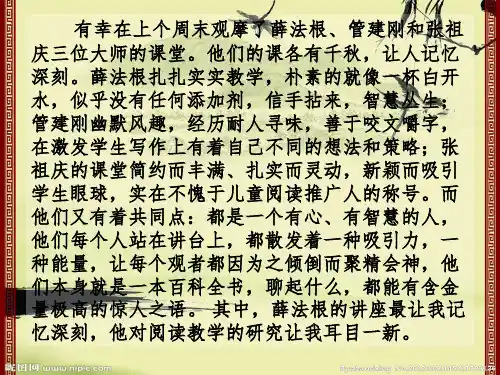 有幸在上个周末观摩了薛法根、管建刚和张祖
庆三位大师的课堂。他们的课各有千秋，让人记忆
深刻。薛法根扎扎实实教学，朴素的就像一杯白开
水，似乎没有任何添加剂，信手拈来，智慧丛生；
管建刚幽默风趣，经历耐人寻味，善于咬文嚼字，
在激发学生写作上有着自己不同的想法和策略；张
祖庆的课堂简约而丰满、扎实而灵动，新颖而吸引
学生眼球，实在不愧于儿童阅读推广人的称号。而
他们又有着共同点：都是一个有心、有智慧的人，
他们每个人站在讲台上，都散发着一种吸引力，一
种能量，让每个观者都因为之倾倒而聚精会神，他
们本身就是一本百科全书，聊起什么，都能有含金
量极高的惊人之语。 其中，薛法根的讲座最让我记
忆深刻，他对阅读教学的研究让我耳目一新。
昵图网 www.nipic.com